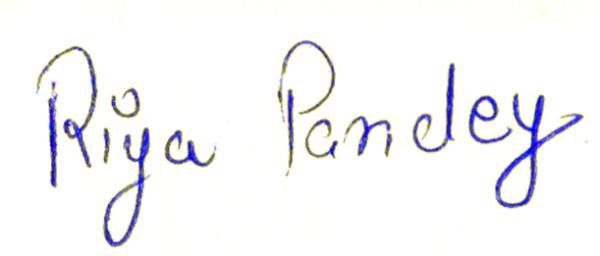 Riya Pandey